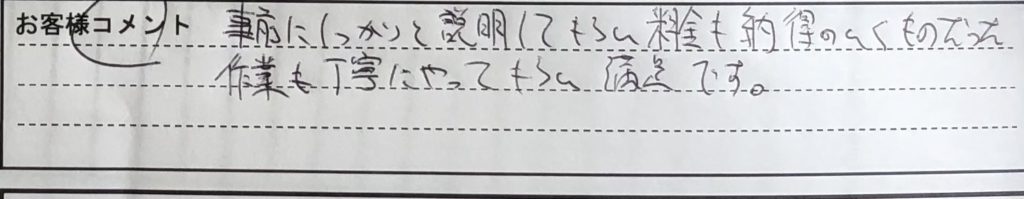 お客様コメント 事前にしっかりと説明してもらい料金も納得のいくものだった
作業も丁寧にやってもらい満点です。